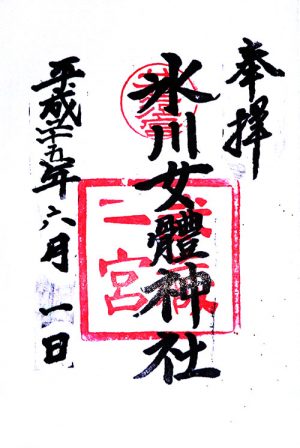 奉拝
氷川女體神社
武蔵
二宮
平成廿五年六月一日